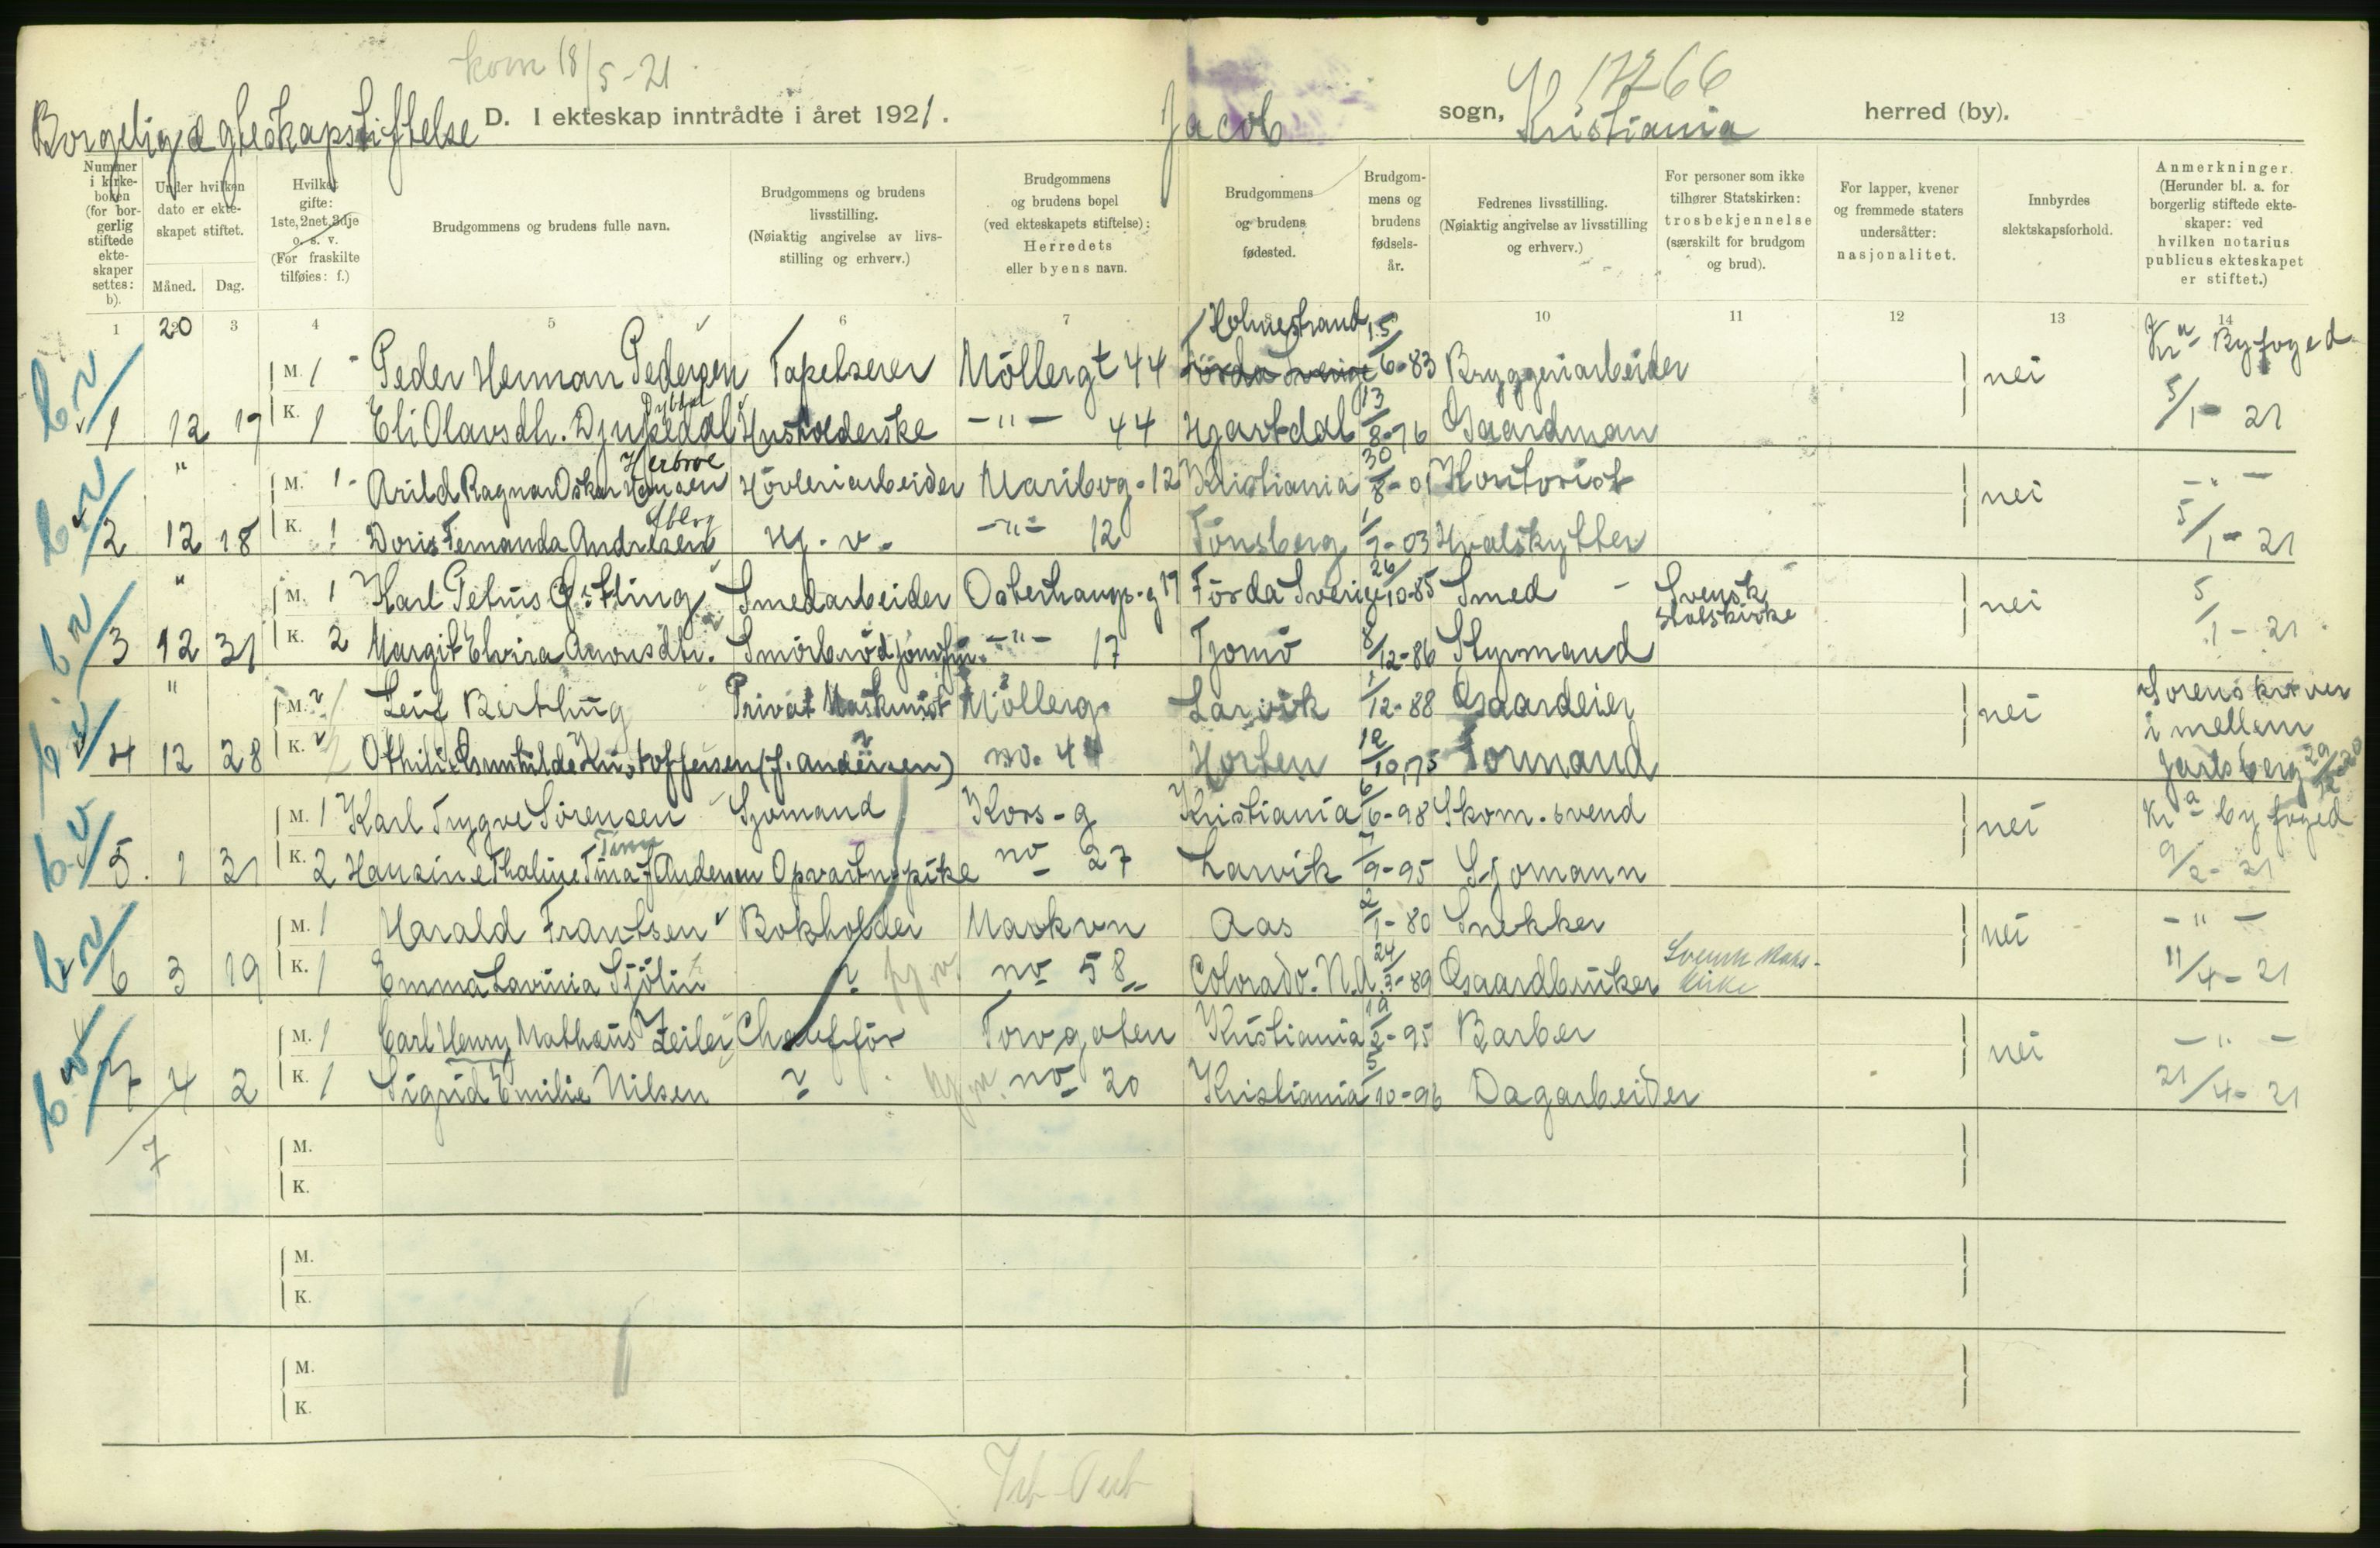 kom 18/5-21
17266
Borgelig ægteskapstiftelse D. I ekteskap inntrådte i året 1921. Jacob sogn, Kristiania herred (by).
Nummer i kirkeboken (for borgerlig stiftede ekteskaper settes: b).
Under hvilken dato er ekteskapet stiftet.
Måned. Dag.
Hvilket gifte: 1ste, 2net, 3dje o. s. v. (For fraskilte tilføies: f.)
Brudgommens og brudens fulle navn.
Brudgommens og brudens livsstilling. (Nøiaktig angivelse av livsstilling og erhverv.)
Brudgommens og brudens bopel (ved ekteskapets stiftelse): Herredets eller byens navn.
Brudgommens og brudens fødested.
Brudgommens og brudens fødselsår.
Fedrenes livsstilling. (Nøiaktig angivelse av livsstilling og erhverv.)
For personer som ikke tilhører Statskirken: trosbekjennelse (særskilt for brudgom og brud).
For lapper, kvener og fremmede staters undersåtter: nasjonalitet.
Innbyrdes slektskapsforhold.
Anmerkninger. (Herunder bl. a. for borgerlig stiftede ekteskaper: ved hvilken notarius publicus ekteskapet er stiftet.)
1 20 3 4 5 6 7 10 11 12 13 14
M. 1 Peder Herman Pedersen Tapetserer Möllergt 44 Holmestrand Förda Sverige 15/6-83 Bryggeriarbeider nei Kra Byfoged
1 12 17 K. 1 Eli Olavsdh. Djupedal Husholderske -"- 44 Hjartdal 13/8-76 Gaardman 5/1-21
" M. 1 Arild Ragnar Oskar Hansen Herbroe Hövleriarbeider Maribog-12 Kristiania 30/8-01 Kontorist nei -"-
2 12 18 K. 1 Doris Fernanda Andresen Hj. v. -"- 12 Tönsberg 1/7-03 Hvalskytter 5/1-21
" M. 1 Karl Petrus Östling Smedarbeider Osterhaugs-g 17 Förda Sverige 26/10-85 Smed - Svensk Statskirke nei 5/1-21
3 12 31 K. 2 Margit Elvira Aronsdh. Smörbrödjomfru -"- 17 Tjomö 8/12-86 Styrmand
" M. Leif Berthling Privat Maskinist Möllerg. Larvik 1/12-88 Gaardeier nei Sorenskriver i mellem
4 12 28 K. Othilie Kristoffersen (f. andersen) no. 44 Horten 12/10,75 Formand Jarlsberg 29/12-20
M. 1 Karl Trygve Sörensen Sjomand Kors-g Kristiania 6/6-98 Skom. svend nei Kra byfoged
5. 1 31 K. 2 Hansine Thaline Tina f Andersen Opvartnpike no 27 Larvik 7/9-95 Sjomann 9/2-21
M. 1 Harald Frantsen Bokholder Markvn Aas 2/1-80 Snekker nei -"-
6 3 19 K. 1 Emma Lavinia Sjölin ? hj. v. no 58 Colorado. N.A. 24/3-89 Gaardbruker Svensk stats-kirke 11/4-21
M. 1 Carl Henry Mathæus Zeiler Chaufför Torvgaten Kristiania 19/2-95 Barber nei -"-
7 4 2 K. 1 Sigrid Emilie Nilsen ? hj. v. no 20 Kristiania 5/10-96 Dagarbeider 21/4-21
7
M.
K.
M.
K.
M.
K.